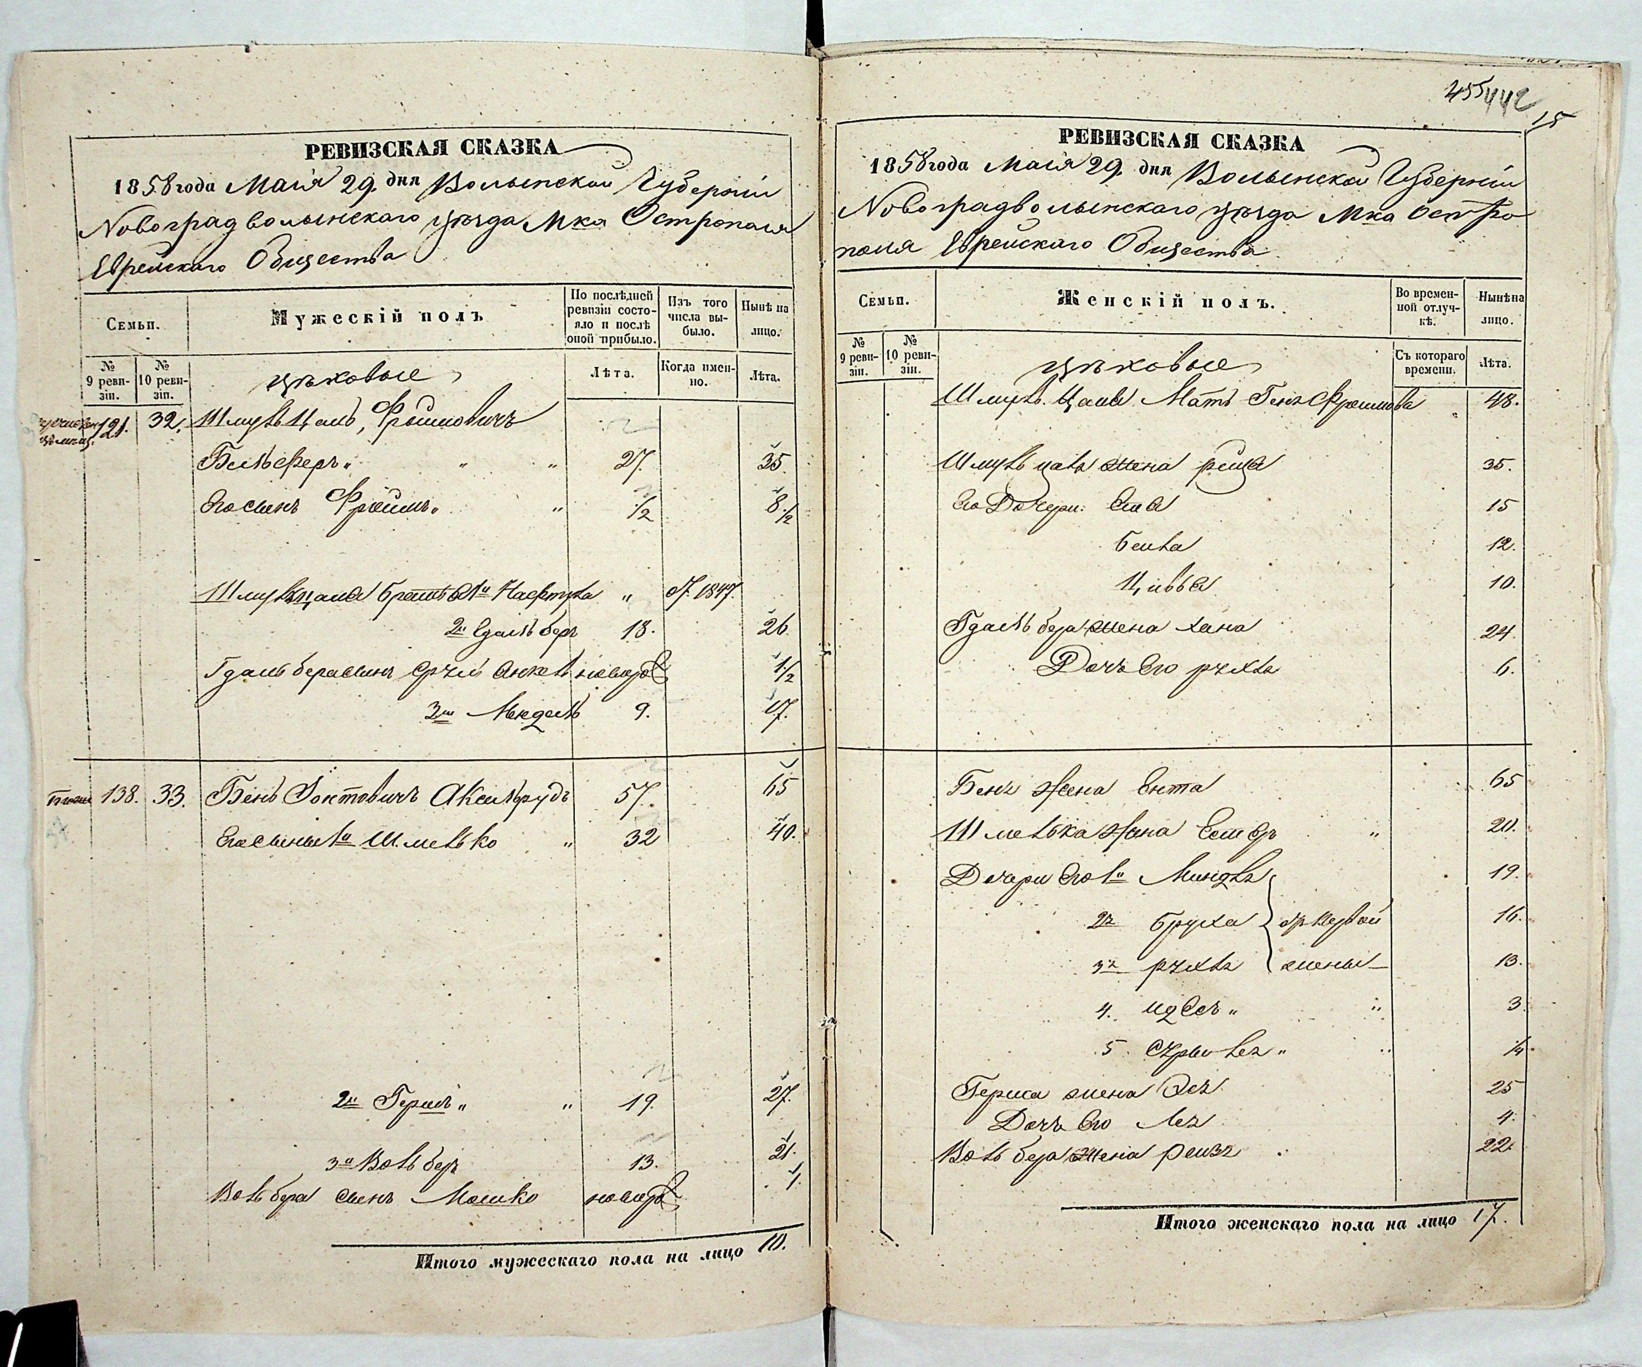 РЕВИЗСКАЯ СКАЗКА
1858 года Маія 29. дня Волынской Губерніи
Новоградволынскаго уѣзда Мка Острополя
Еврейскаго Общества
Семьи.
Мужескій полъ
По послѣдней ревизіи состояло и послѣ оной прибыло.
Изъ того числа выбыло.
Нынѣ на лицо.
№ 9 ревизіи.
№ 10 ревизіи.
Лѣта.
Когда именно.
Лѣта.
цѣховые
121. 32. Шмуль Цаль, Фроимовичъ
Бельферъ " " " 27 35.
Его сынъ Фроимъ " " 1/2 8 1/2
Шмуль цаля братья 1й Нафтула " 1847.
2й Гдаль беръ 18. 26
Гдаль бера сынъ Срул новор 1 1/2
3й Мендель 9. 17.
138. 33. Бень Аксельрудъ 57. 65
Его сыны 1й Шмелько " 32 40.
2й Гершъ " " 19. 27.
3й Воль беръ 13. 21.
Воль бера сынъ Мошко новор 1.
Итого мужескаго пола на лицо 10.
455 442
15
РЕВИЗСКАЯ СКАЗКА
1858 года Маія 29. дня Волынской Губерніи
Новоградволынскаго уѣзда Мка Остро
поля Еврейскаго Общества
Семьи.
Женскій полъ.
Во временной отлучкѣ.
Нынѣ на лицо.
№ 9 ревизіи.
№ 10 ревизіи.
Съ котораго времени.
Лѣта.
цѣховые
Шмуль Цаля Мать Геня Фроимова " 48.
Шмуль цаля жена 35.
Его Дочери: 15
Бейла 12.
Цивья 10.
Гдаль бера жена Хана 24
Дочь Его рухля 6.
Беня жена Ента 65
Шмелька жена Естеръ " 20.
Дочери Его 1я Миндля 19.
2я Бруха отъ первой 16.
3я рухля жены 13.
4. Идесъ " " 3
5. " " 1/4
Герша жена 25
Дочь Его Лея 4.
Воль бера жена рейзя 22.
Итого женскаго пола на лицо 17.